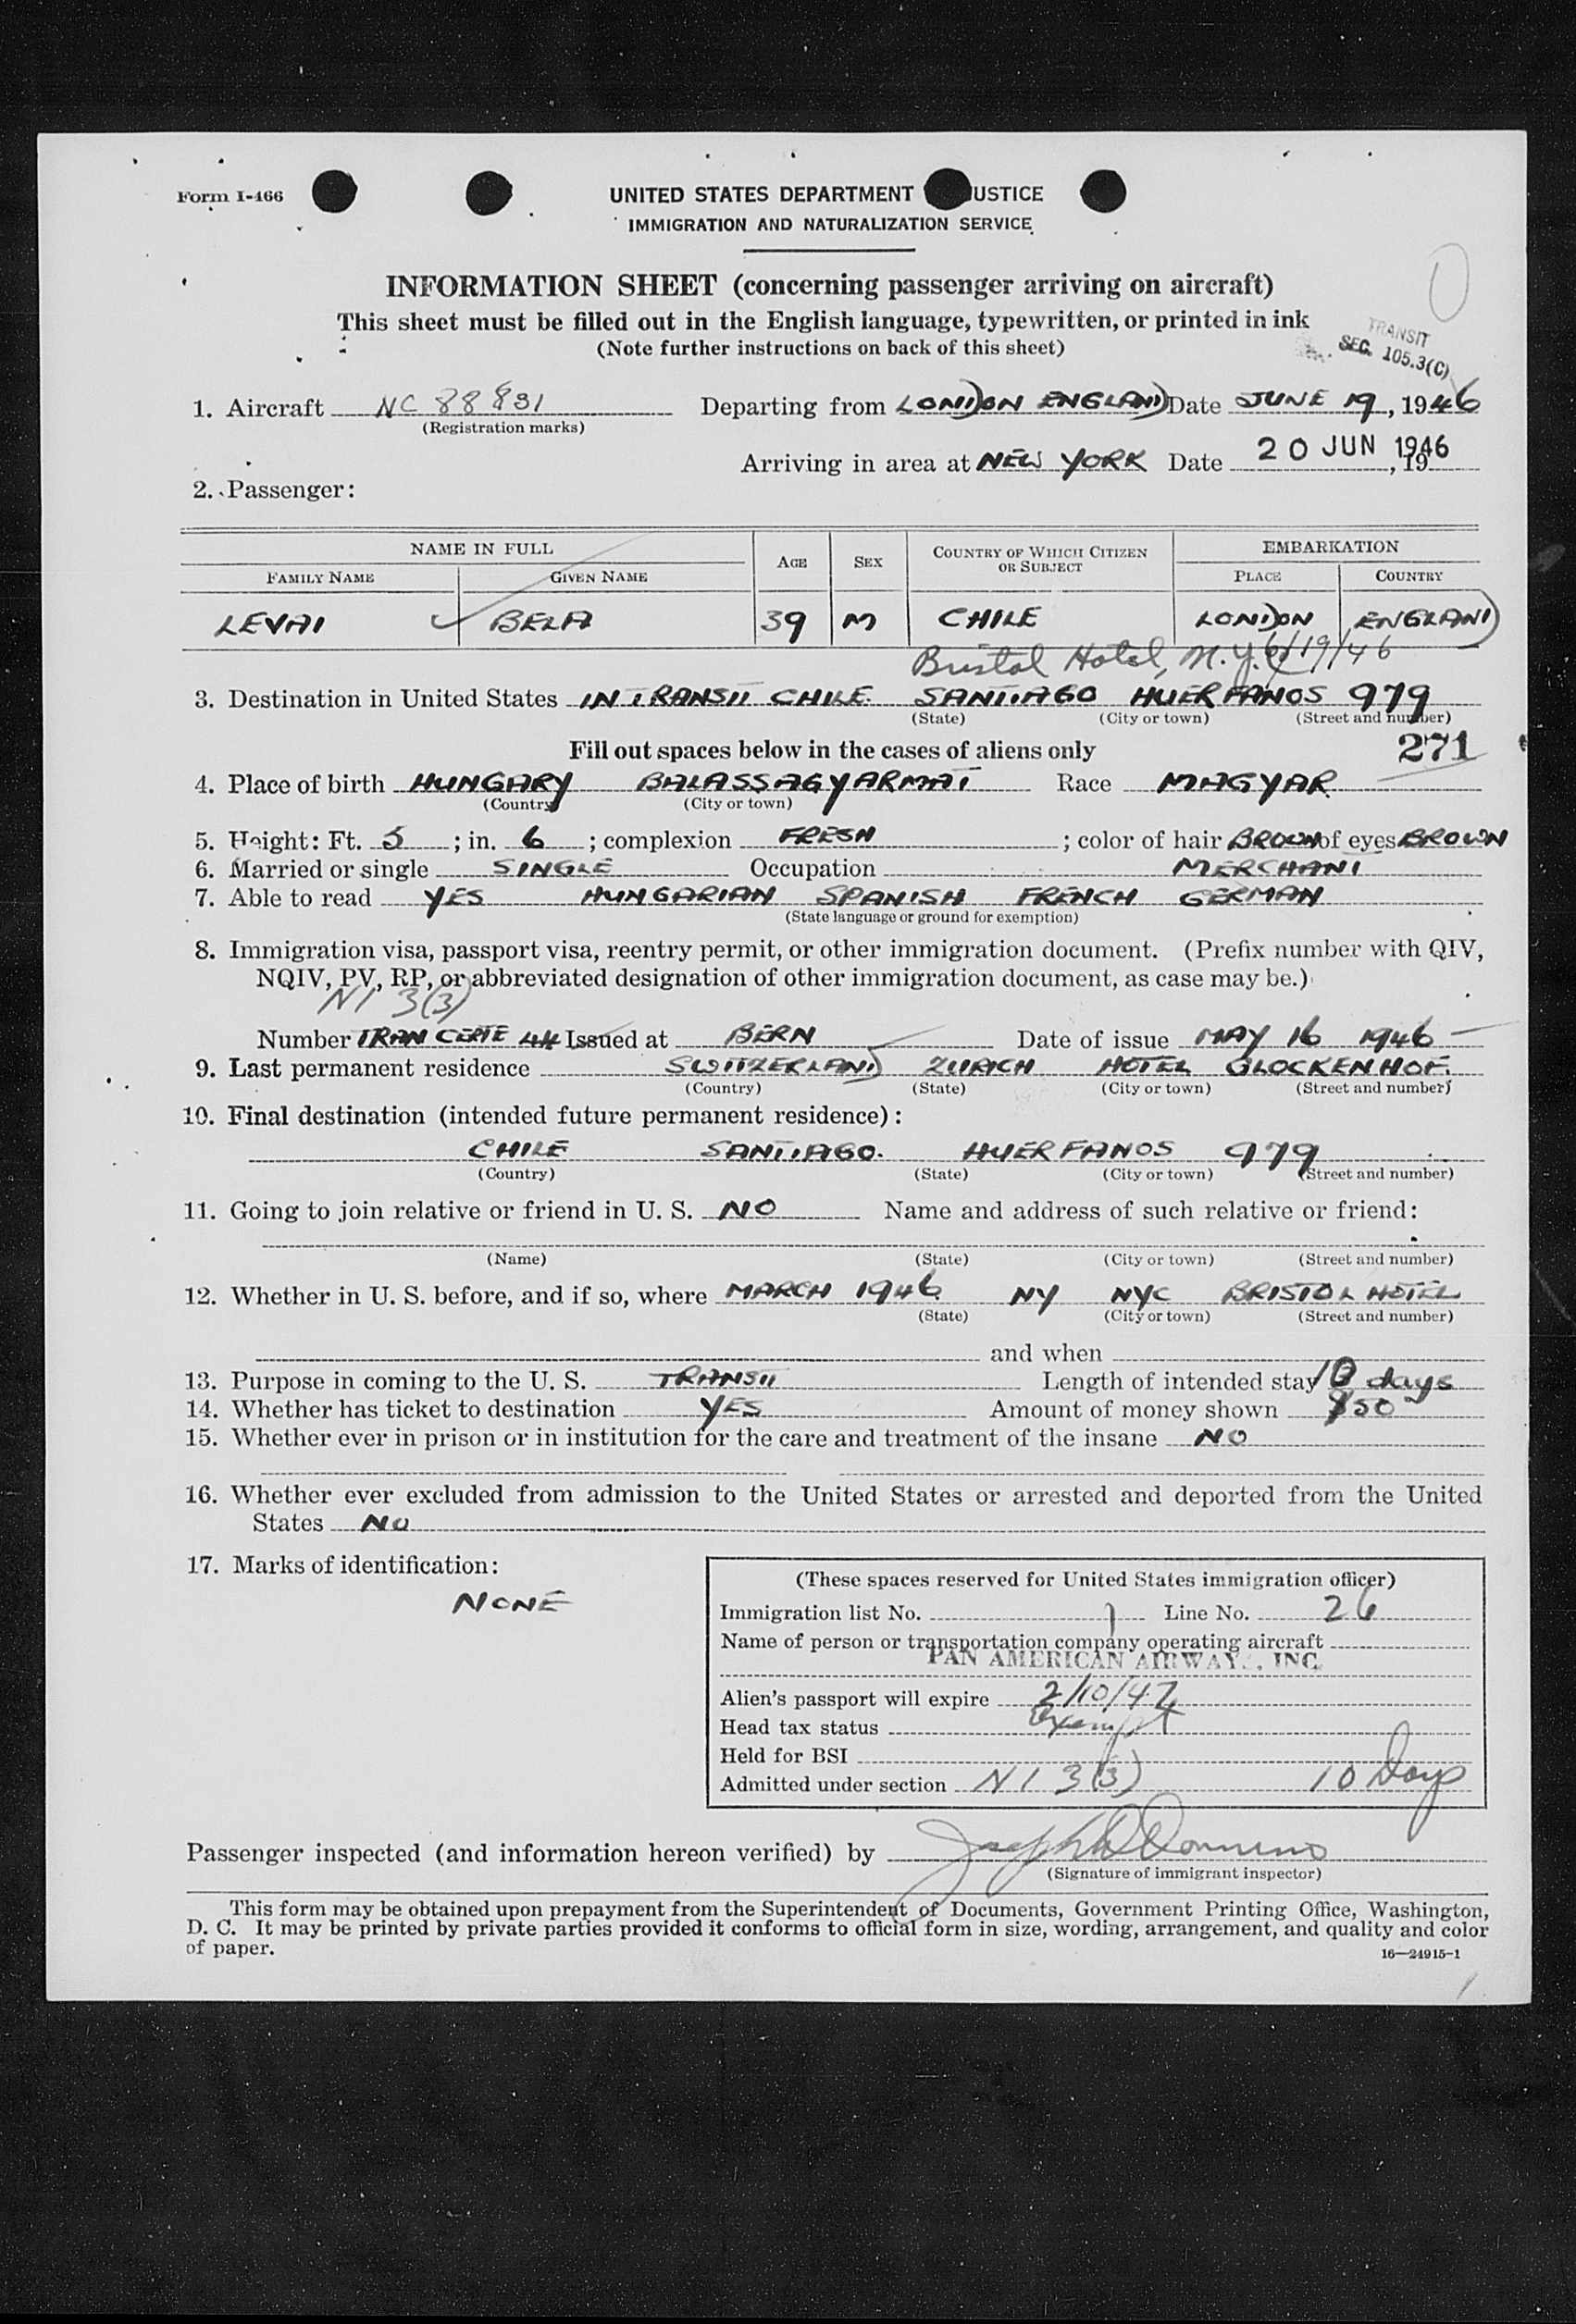 Form I-466
UNITED STATES DEPARTMENT USTICE
IMMIGRATION AND NATURALIZATION SERVICE
INFORMATION SHEET (concerning passenger arriving on aircraft)
This sheet must be filled out in the English language, typewritten, or printed in ink
(Note further instructions on back of this sheet)
TRANSIT
SEC. 105.3(C)
1. Aircraft NC 88831 Departing from LONDON ENGLAND Date JUNE 19, 1946
(Registration marks)
Arriving in area at NEW YORK Date 20 JUN 1946, 19
2. Passenger:
NAME IN FULL AGE SEX COUNTRY OF WHICH CITIZEN OR SUBJECT EMBARKATION
FAMILY NAME GIVEN NAME PLACE COUNTRY
LEVAI BELA 39 M CHILE LONDON ENGLAND
Bristol Hotel, N.Y. 6/19/46
3. Destination in United States IN TRANSIT CHILE SANTIAGO HUERFANOS 979
(State) (City or town) (Street and number)
Fill out spaces below in the cases of aliens only 271
4. Place of birth HUNGARY BALASSAGYARMAT Race MAGYAR
(Country) (City or town)
5. Height: Ft. 5; in. 6; complexion FRESH; color of hair BROWN of eyes BROWN
6. Married or single SINGLE Occupation MERCHANT
7. Able to read YES HUNGARIAN SPANISH FRENCH GERMAN
(State language or ground for exemption)
8. Immigration visa, passport visa, reentry permit, or other immigration document. (Prefix number with QIV,
NQIV, PV, RP, or abbreviated designation of other immigration document, as case may be.)
NI 3(3)
Number TRAN CERTE 44 Issued at BERN Date of issue MAY 16 1946
9. Last permanent residence SWITZERLAND ZURICH HOTEL GLOCKENHOF.
(Country) (State) (City or town) (Street and number)
10. Final destination (intended future permanent residence):
CHILE SANTIAGO. HUERFANOS 979
(Country) (State) (City or town) (Street and number)
11. Going to join relative or friend in U. S. NO Name and address of such relative or friend:
(Name) (State) (City or town) (Street and number)
12. Whether in U. S. before, and if so, where MARCH 1946 NY NYC BRISTOL HOTEL
(State) (City or town) (Street and number)
and when
13. Purpose in coming to the U. S. TRANSIT Length of intended stay 10 days
14. Whether has ticket to destination YES Amount of money shown $50
15. Whether ever in prison or in institution for the care and treatment of the insane NO
16. Whether ever excluded from admission to the United States or arrested and deported from the United
States NO
17. Marks of identification:
NONE
(These spaces reserved for United States immigration officer)
Immigration list No. 1 Line No. 26
Name of person or transportation company operating aircraft
PAN AMERICAN AIRWAYS, INC.
Alien's passport will expire 2/10/47
Head tax status Exempt
Held for BSI
Admitted under section NI 3(3) 10 Days
Passenger inspected (and information hereon verified) by
(Signature of immigrant inspector)
This form may be obtained upon prepayment from the Superintendent of Documents, Government Printing Office, Washington,
D. C. It may be printed by private parties provided it conforms to official form in size, wording, arrangement, and quality and color
of paper.
16—24915-1